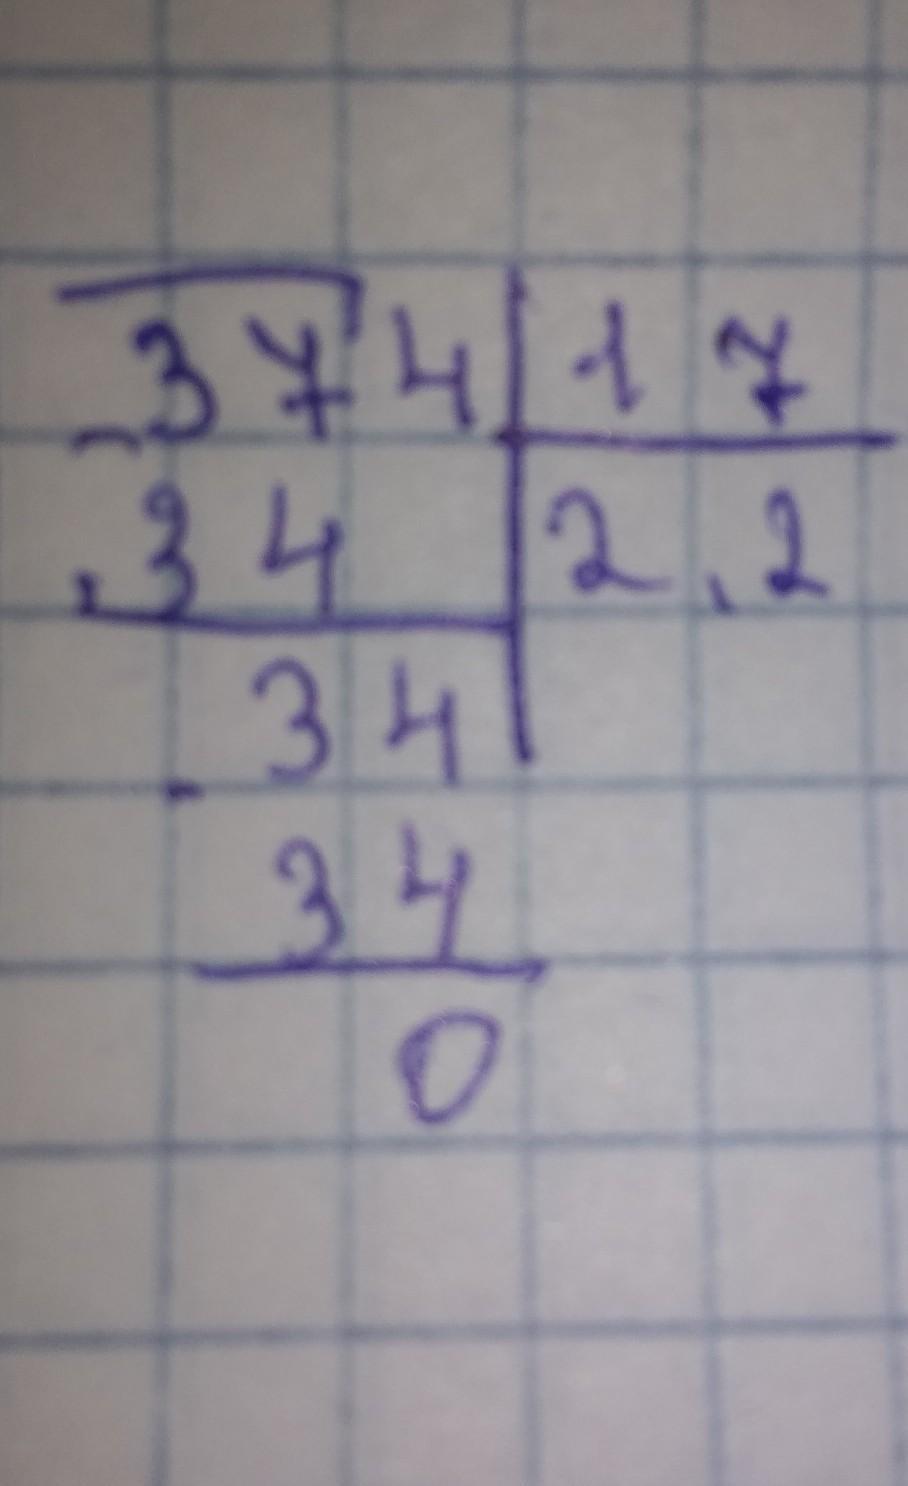 374 | 17
- 34 | 2,2
34
- 34
0